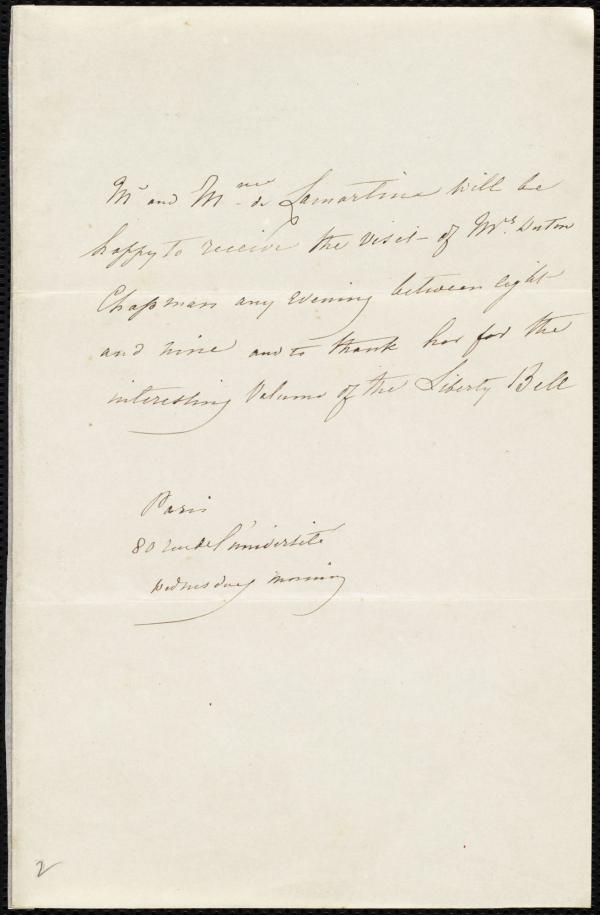 Mr and Mme de Lamartine will be
happy to receive the visit of Mrs. Weston
Chapman any evening between eight
and nine and to thank her for the
interesting Volume of the Liberty Bell
Paris
80 rue de l'université
Wednesday morning
2